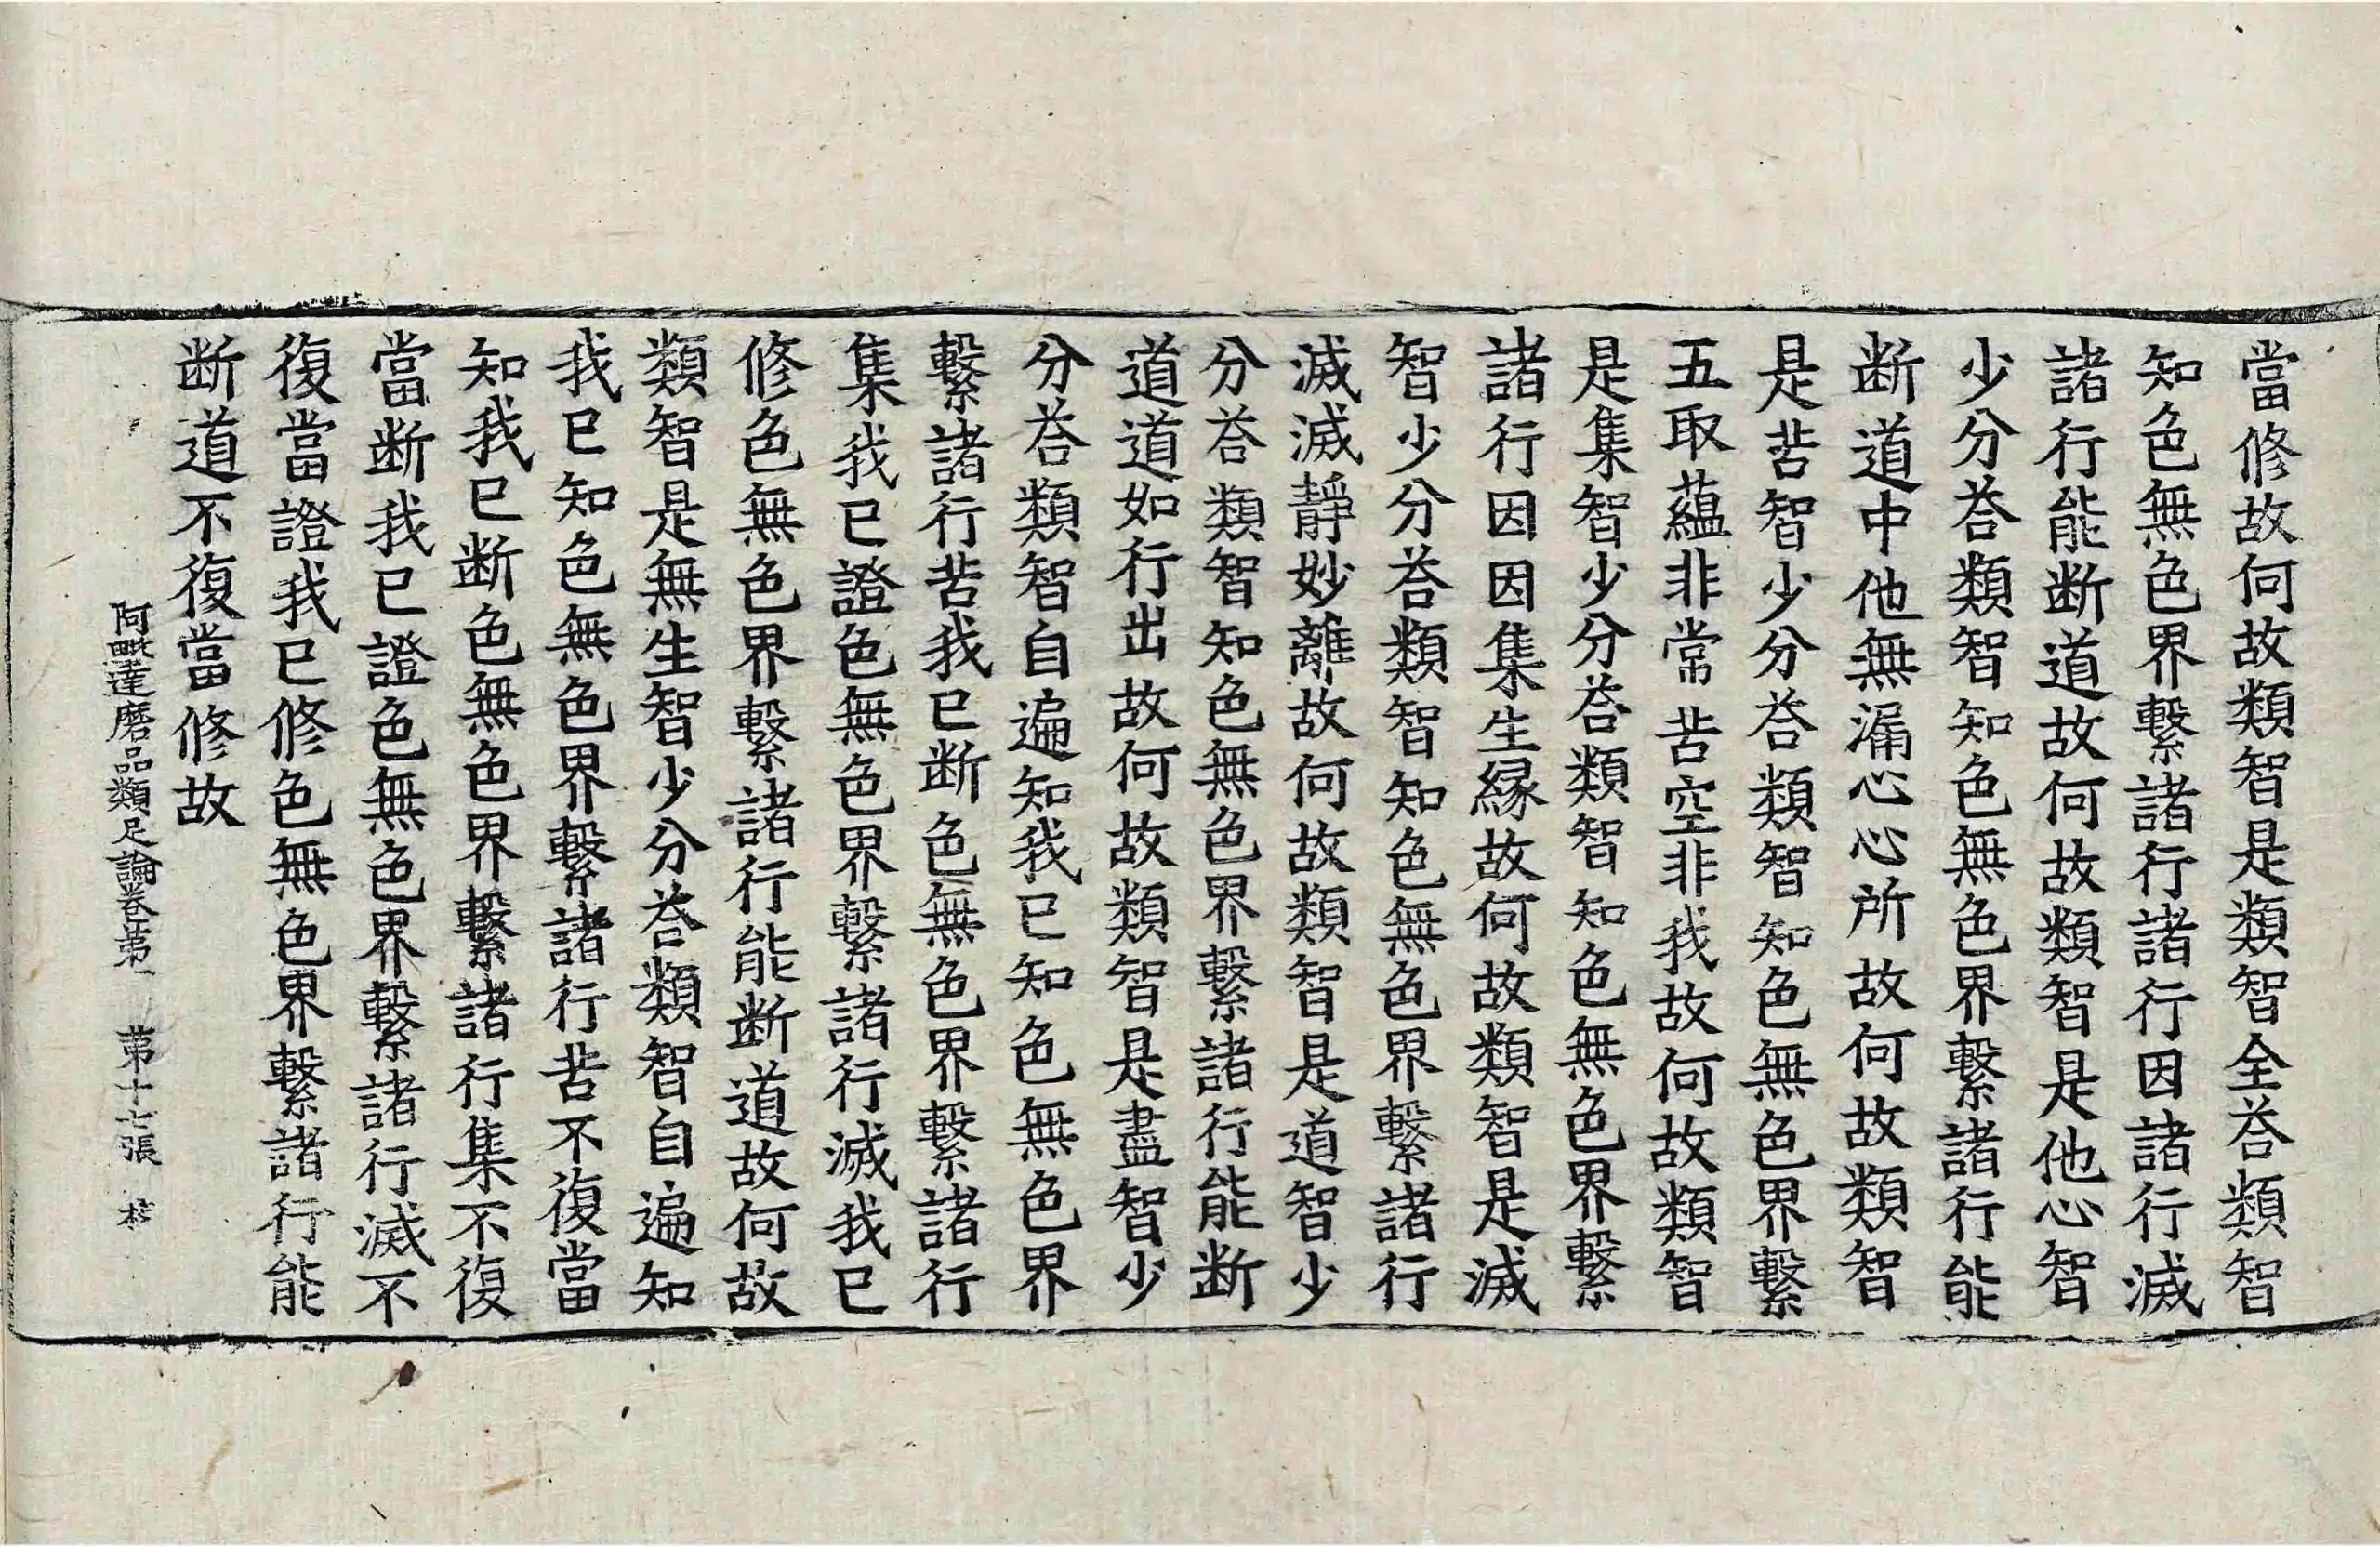 當修故何故類智是類智全荅類智
知色無色界繫諸行諸行因諸行滅
諸行能断道故何故類智是他心智
少分荅類智知色無色界繫諸行能
断道中他無漏心心所故何故類智
是苦智少分荅類智知色無色界繫
五取蘊非常苦空非我故何故類智
是集智少分荅類智知色無色界繫
諸行因因集生縁故何故類智是滅
智少分荅類智知色無色界繫諸行
滅滅靜妙離故何故類智是道智少
分荅類智知色無色界繫諸行能断
道道如行出故何故類智是盡智少
分荅類智自遍知我已知色無色界
繫諸行苦我已断色無色界繫諸行
集我已證色無色界繫諸行滅我已
修色無色界繫諸行能断道故何故
類智是無生智少分荅類智自遍知
我已知色無色界繫諸行苦不復當
知我已断色無色界繫諸行集不復
當断我已證色無色界繫諸行滅不
復當證我已修色無色界繫諸行能
断道不復當修故
阿毗達磨品類足論卷苐一 苐十七張